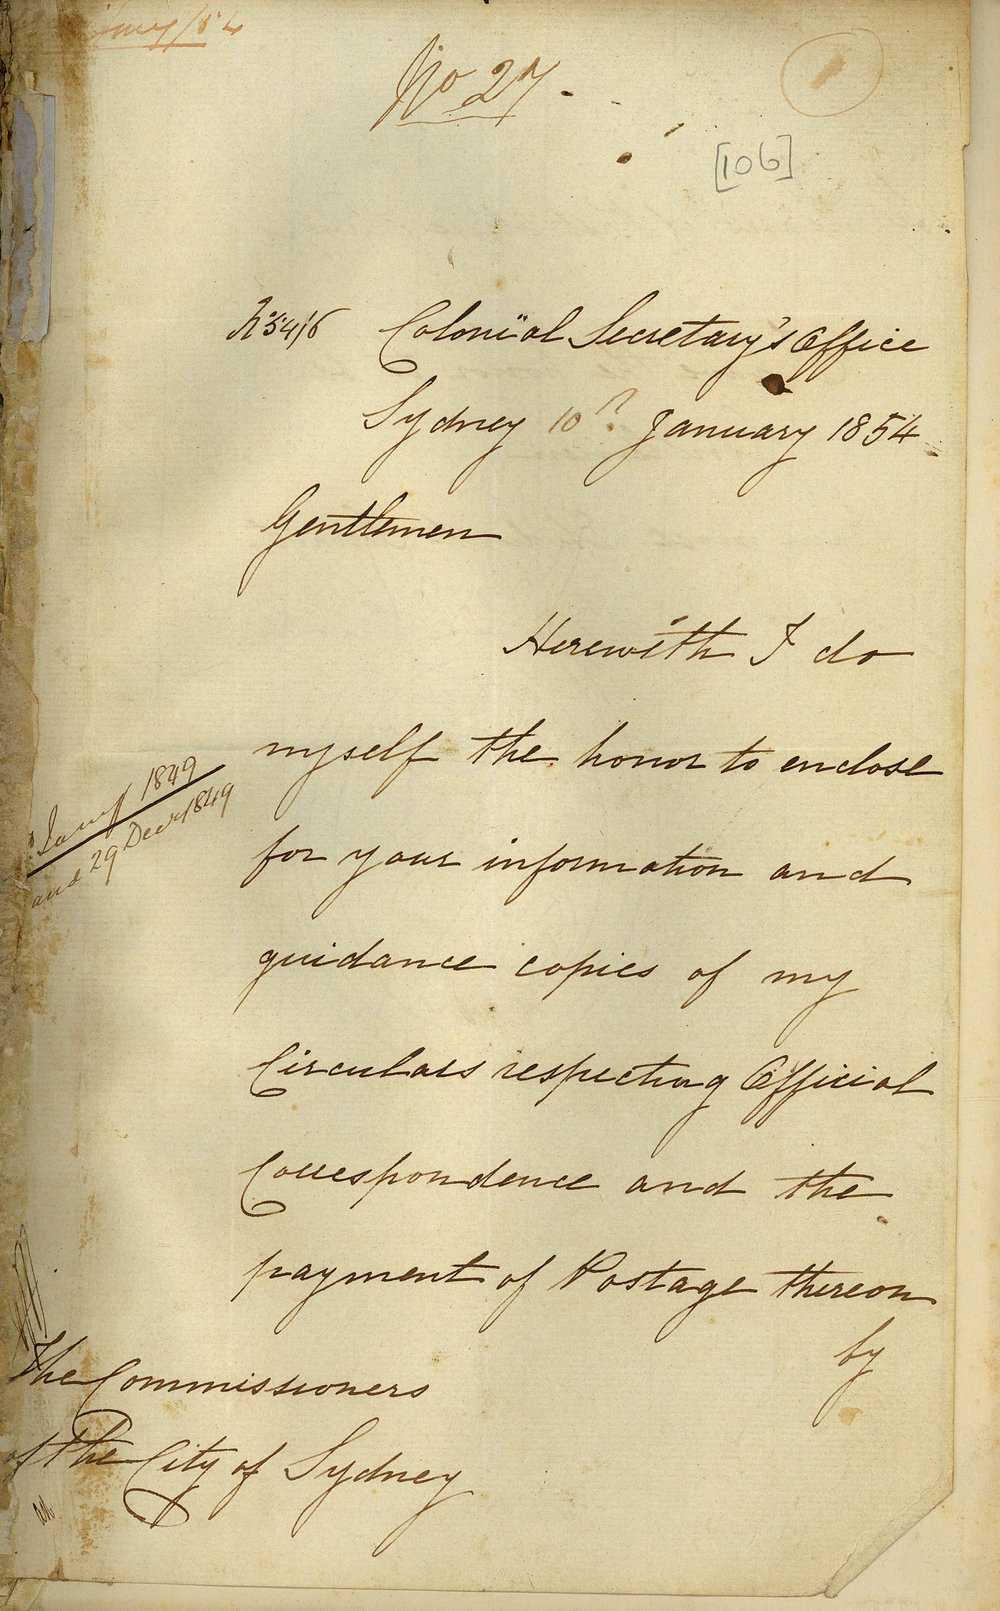 No 27.
[106]
Colonial Secretary's Office
Sydney 10th January 1854
Gentlemen
Herewith I do
myself the honor to enclose
1849
and 29 Decr 1849
for your information and
guidance copies of my
Circulars respecting Official
Correspondence and the
payment of Postage thereon
by
The Commissioners
of the City of Sydney